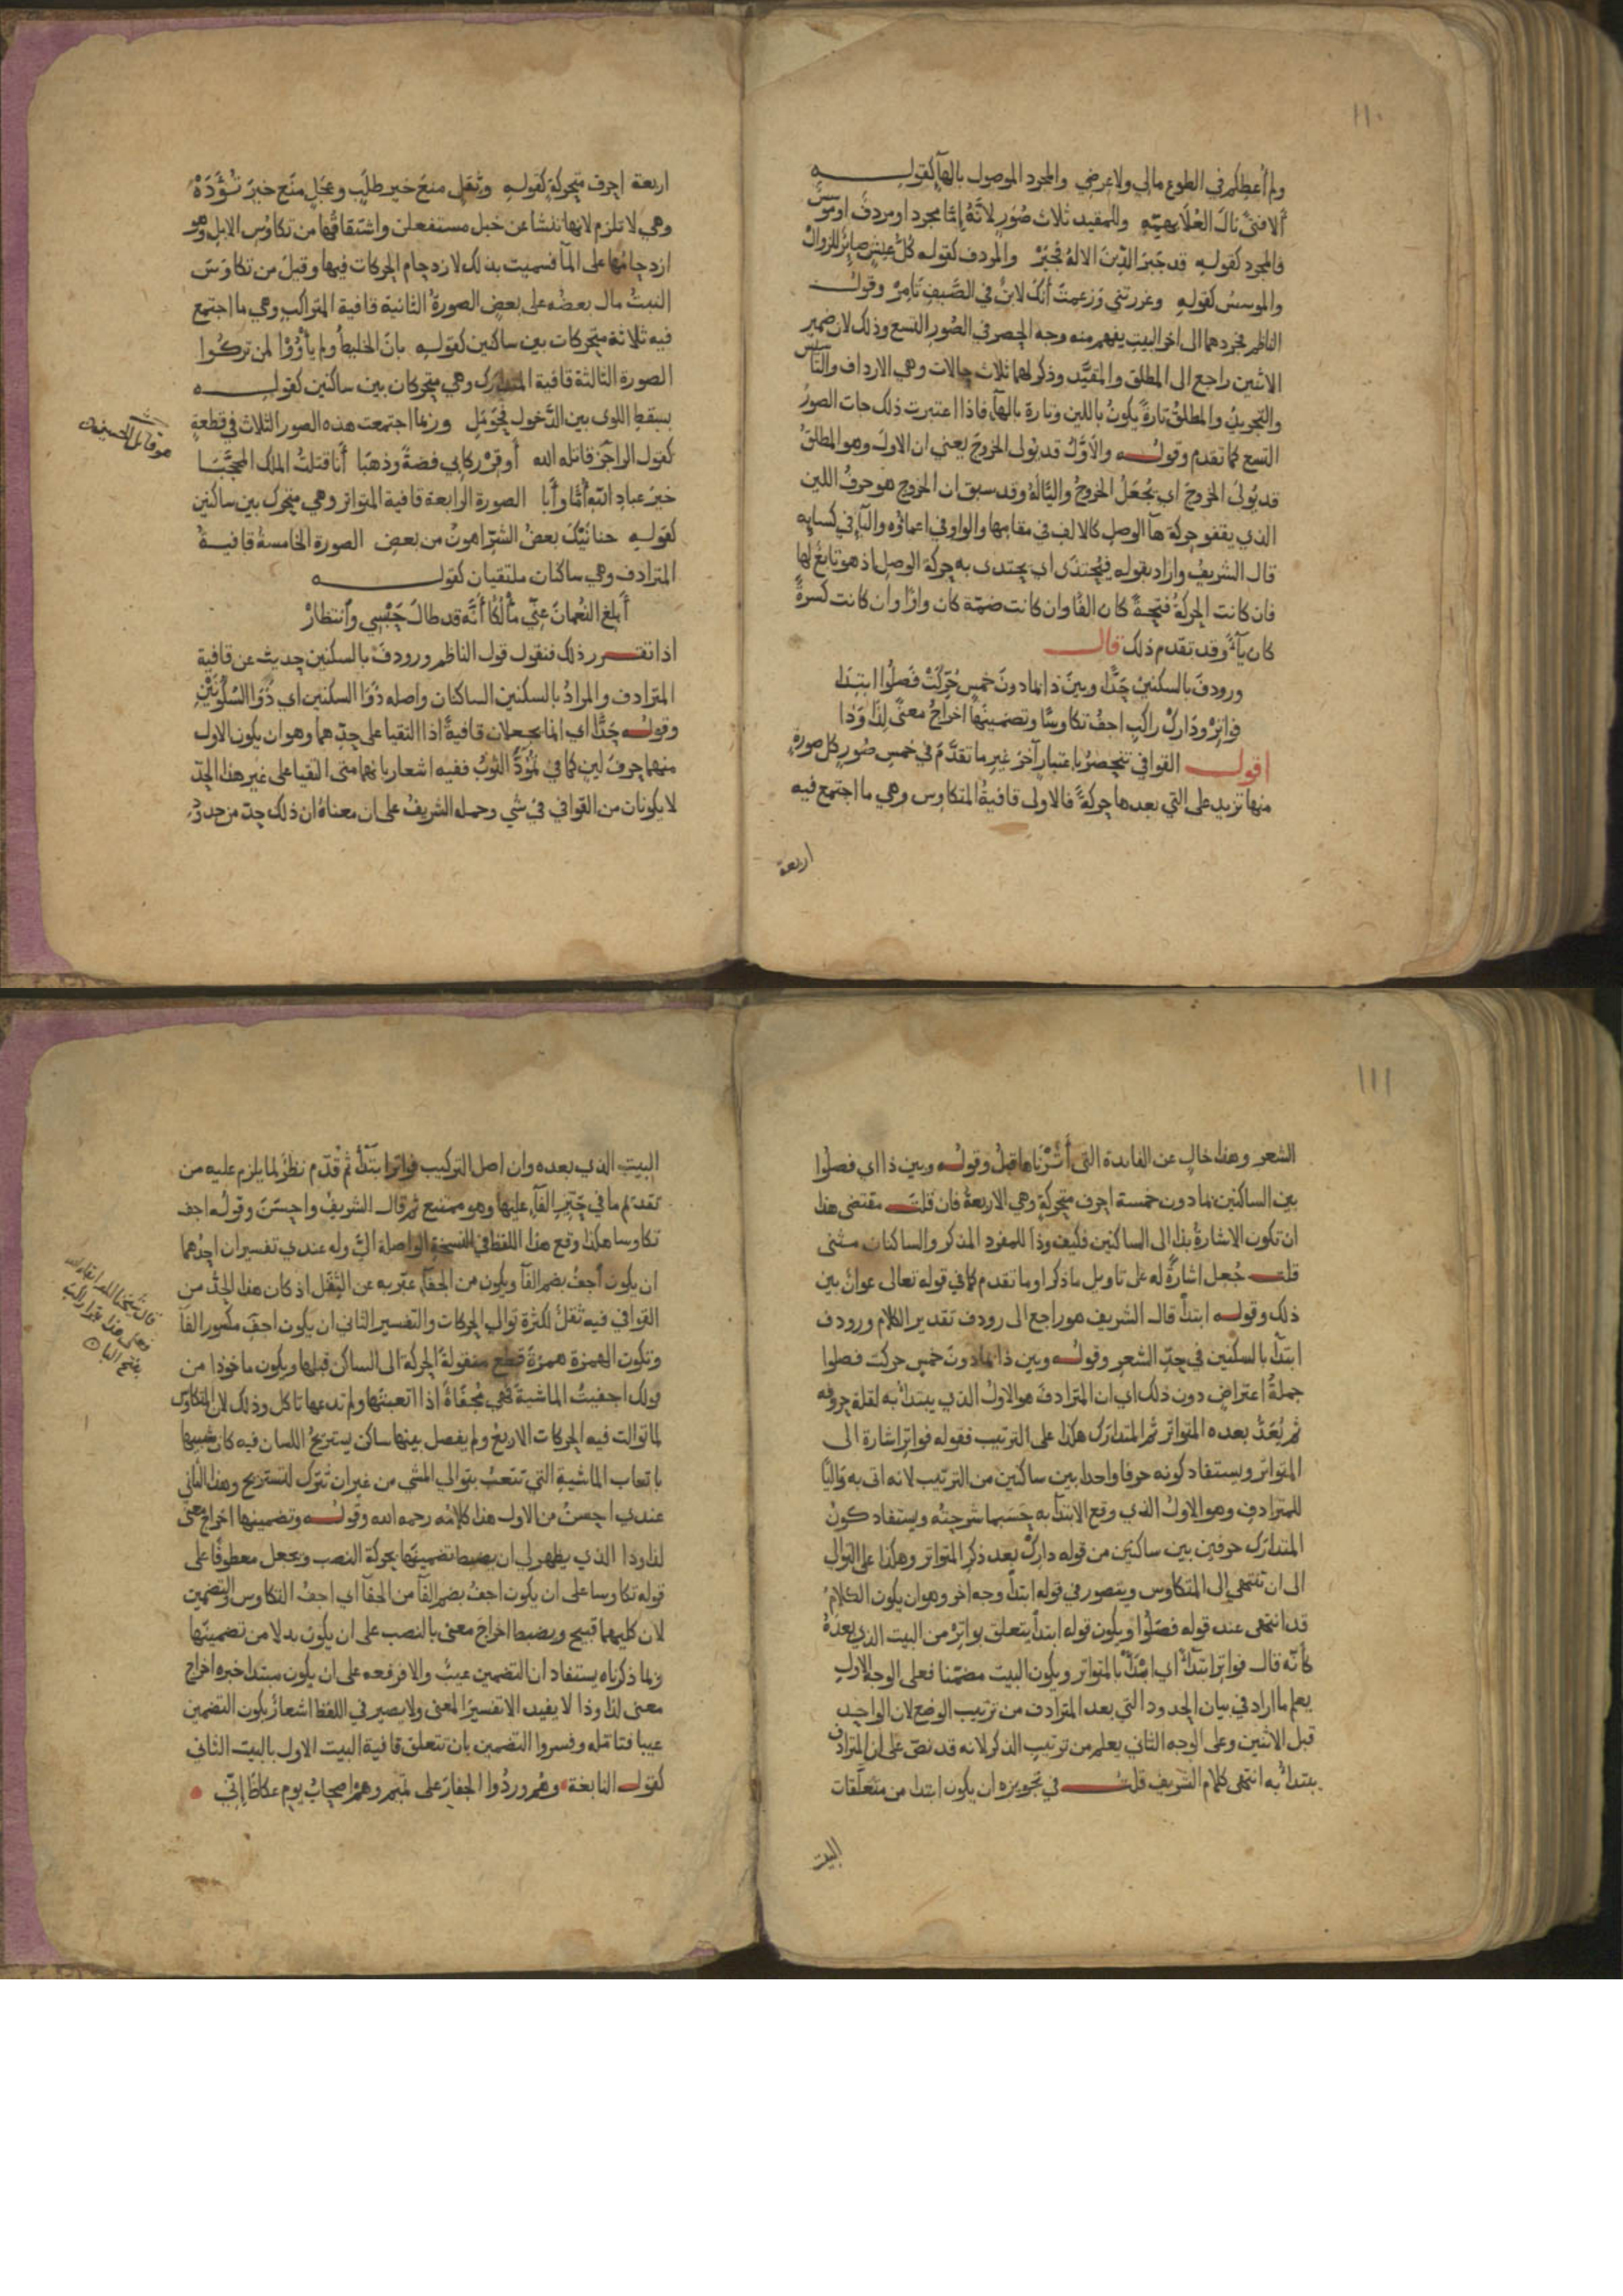 ١١٠
ولم أعطكم في الطوع مالي ولا عرضي والمجرد الموصول بالهآ كقوله
ألا فتىً نالَ العُلَا بهمّهِ وللمقيد ثلاث صُوَرٍ لأنّهُ إمّا مجرد او مردف او موسس
فالمجرد كقوله قد جَبَرَ الدّينَ الالهُ فجُبَرْ والمردف كقوله كلُّ عيشٍ صايرٌ للزوالْ
والموسسُ كقوله وغررتني وزعمتَ أنّك لابنٌ في الصّيفِ تَامِرْ وقول
الناظم فجردهما الى اخر البيت يفهم منه وجه الحصر في الصُّورِ التسع وذلك لان ضمير
الاثنين راجع الى المطلق والمقيَّد وذكر لهما ثلاث حالات وهي الارداف والتأسيس
والتجريدُ والمطلقُ تارةً يكونُ باللين وتارة بالهآ فاذا اعتبرت ذلك جات الصورُ
التسع كما تقدم وقوله والأوّلُ قد يُولى الخروجَ يعني ان الاولَ وهو المطلقُ
قد يُولَى الخروجَ اي يُجعَلُ الخروجُ واليًا لهُ وقد سبق ان الخروج هو حرفُ اللين
الذي يقفو حركة هآ الوصل كالالف في مقامها والواو في اعماؤه واليآ في كسايه
قال الشريف واراد بقوله فيُحتذَى اي يحتذى به حركة الوصل اذ هو تابعٌ لها
فان كانت الحركةُ فتحةً كان الفًا وان كانت ضمّة كان واوًا وان كانت كسرةً
كان يآءً وقد تقدّم ذلك قال
ورودفَ بالسكنينِ حَدًّا وبينَ ذا بما دونَ خمسٍ حُرِّكَتْ فَصَلُوا ابتدَا
فواتِرْ ودَارِكْ راكبِ اجفُ تكاوسًا وتضمينُها اخراجُ معنًى لِذَا وَذا
اقول القوافي تنحصرُ باعتبارٍ آخرَ غيرِ ما تقدَّمَ في خمسِ صُورٍ كل صورةٍ
منها تزيد على التي بعدها حركةً فالاولى قافيةُ المتكاوس وهي ما اجتمع فيه
اربعة
اربعة احرف متحركةٍ كقوله وثِقَلٍ منعَ خيرَ طَلَبٍ وعَجَلٍ منَع خيرَ تُؤَدَهْ
وهي لا تلزم لانها تنشا عن خبل مستفعلن واشتقاقُها من تكاوُسِ الابلِ وهو
ازدحامُها على المآ فسميت بذلك لازدحام الحركات فيها وقيل من تكاوَسَ
النبتُ مال بعضُه على بعضٍ الصورةُ الثانية قافية المتراكب وهي ما اجتمع
فيه ثلاثة متحركات بين ساكنين كقوله بانَ الخليطُ ولم يأْوُوا لمن تركوا
الصورة الثالثة قافية المتدارك وهي متحركان بين ساكنين كقوله
بسِقطِ اللوى بين الدَّخول فحَوْمَلِ وربما اجتمعت هذه الصور الثلاث في قطعةٍ
كقول الراجز قاتله الله أوقِرْ ركابي فضةً وذهَبَا أنا قتلتُ الملك المحجَّبَا
خيرُ عبادِ اللهِ أُمًّا وأَبا الصورة الرابعة قافية المتواتر وهي متحرك بين ساكنين
كقوله حنانَيْكَ بعضُ الشرّ اهونُ من بعضِ الصورة الخامسةُ قافية
المترادف وهي ساكنان ملتقيان كقوله
أبلغِ النعمانَ عنّي مألُكًا أنّه قد طالَ حَبْسِي وانتظارْ
اذا تقرر ذلك فنقول قول الناظم ورودفَ بالسكنين حديث عن قافية
المترادف والمرادُ بالسكنين الساكنان واصله ذَوَا السكنين اي ذَوَا السُّكُونَيْنِ
وقوله حَدًّا اي انما يجعلان قافيةً اذا التقيا على حدّهما وهو ان يكون الاول
منهما حرفَ لينٍ كما في تُمُودَّ الثوبُ ففيه اشعار بانهما متى التقيا على غير هذا الحدّ
لا يكونان من القوافي في شي وحمله الشريفُ على ان معناهُ ان ذلك حدّ من حدود
هو قاتل الحسين
١١١
الشعر وهذا خالٍ عن الفايدة التي أَشَرْنَا اليها قبلُ وقوله وبين ذا اي فصلُوا
بين الساكنين بما دون خمسة احرف متحركةٍ وهي الاربعةُ فان قلتَ مقتضى هذا
ان تكون الاشارةُ بذا الى الساكنين فكيف وذا للمفرد المذكر والساكنان مثنى
قلتُ جُعل اشارةً له على تاويل ما ذكر او ما تقدم كما في قوله تعالى عوانٌ بين
ذلك وقوله ابتدأ قال الشريف هو راجع الى رودف تقدير الكلام ورودف
ابتدآ بالسكنين في حدّ الشعر وقوله وبين ذا بما دونَ خمسٍ حركت فصلوا
جملةُ اعتراضٍ دون ذلك اي ان المترادفَ هو الاولُ الذي يبتدأ به لقلة حروفه
ثم يُعَدُّ بعده المتواترُ ثم المتدارَك هكذا على الترتيب فقوله فواتِر اشارة الى
المتواتر ويستفاد كونه حرفا واحدا بين ساكنين من الترتيب لانه اتى به تاليًا
للمترادف وهو الاولُ الذي وقع الابتدآ به حَسَبما شرحتُه ويستفاد كونُ
المتدارَك حرفين بين ساكنين من قوله دارِكْ بعد ذكر المتواتر وهكذا على التوالي
الى ان تنتهي الى المتكاوس ويتصور في قوله ابتدأ وجه اخر وهو ان يكون الكلامُ
قد انتهى عند قوله فصلُوا ويكون قوله ابتدأ يتعلق بواتِرْ من البيت الذي بعدهُ
كأنّه قال فواتِر ابتدآً اي ابتدأ بالمتواتر ويكون البيت مضمّنا فعلى الوجه الاول
يعلم ما اراد في بيان الحدود التي بعد المترادف من ترتيب الوضع لان الواحد
قبل الاثنين وعلى الوجه الثاني يعلم من ترتيب الذكر لانه قد نصّ على ان المترادف
يبتدأ به انتهى كلام الشريف قلتُ في تجويزه ان يكون ابتدا من متعلّقات
البيت
البيت الذي بعده وان اصل التركيب فواتِرا ابتدأ ثم قدّم نظرٌ لما يلزم عليه من
تقديم ما في حَيّز الفآ عليها وهو ممتنع ثم قال الشريفُ واحسَنَ وقولُه اجف
تكاوسا هكذا وقع هذا اللفظ في النسخة الواصلة اليّ وله عندي تفسيران احدُهما
ان يكون أجفُ بضم الفآ ويكون من الجفآء عبّر به عن الثِّقَل اذ كان هذا الحدُّ من
القوافي فيه ثقلٌ لكثرة توالي الحركات والتفسير الثاني ان يكون اجفِ مكسور الفآ
وتكون الهمزة همزةَ قطع منقولةَ الحركة الى الساكن قبلها ويكون ماخوذا من
قولك اجفيتُ الماشيةَ فهي مُجفَاةٌ اذا اتعبتَها ولم تدعها تاكل وذلك لان المتكاوس
لما توالت فيه الحركات الاربعُ ولم يفصل بينها ساكن يستريحُ اللسان فيه كان شبيها
باتعاب الماشيةِ التي تتعبُ بتوالي المشي من غير ان تُترَك لتستريح وهذا الثاني
عندي احسنُ من الاول هذا كلامُه رحمه الله وقوله وتضمينها اخراج معنى
لذا وذا الذي يظهر لي ان يضبط تضمينَها بحركة النصب ويجعل معطوفًا على
قوله تكاوسا على ان يكون اجفُ بضم الفآ من الجفآ اي اجفُ التكاوس والتضمين
لان كليهما قبيح ويضبط اخراجَ معنى بالنصب على ان يكونَ بدلا من تضمينَها
وبما ذكرناه يستفاد ان التضمين عيبٌ والا فرفعه على ان يكون مبتدا خبره اخراج
معنى لذا وذا لا يفيد الا تفسيرَ المعنى ولا يصير في اللفظ اشعارٌ بكون التضمين
عيبا فتأمله وفسروا التضمين بان تتعلق قافية البيت الاول بالبيت الثاني
كقول النابغة وهُم وردُوا الجفارَ على تميمٍ وهُمْ اصحابُ يومِ عكاظَ إنّي
قال شيخنا
بفتح البآ